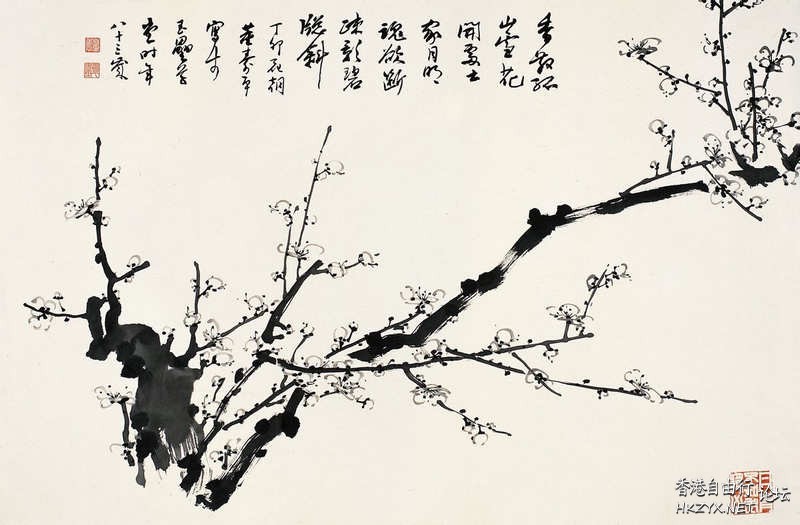 香散孤
山雪花
開處士
家月明
魂欲斷
疎影碧
牕斜
丁卯花朝
董壽平
寫於
玉壘草
堂時年
八十三歲
香港自由行论坛
HKZYX.NET